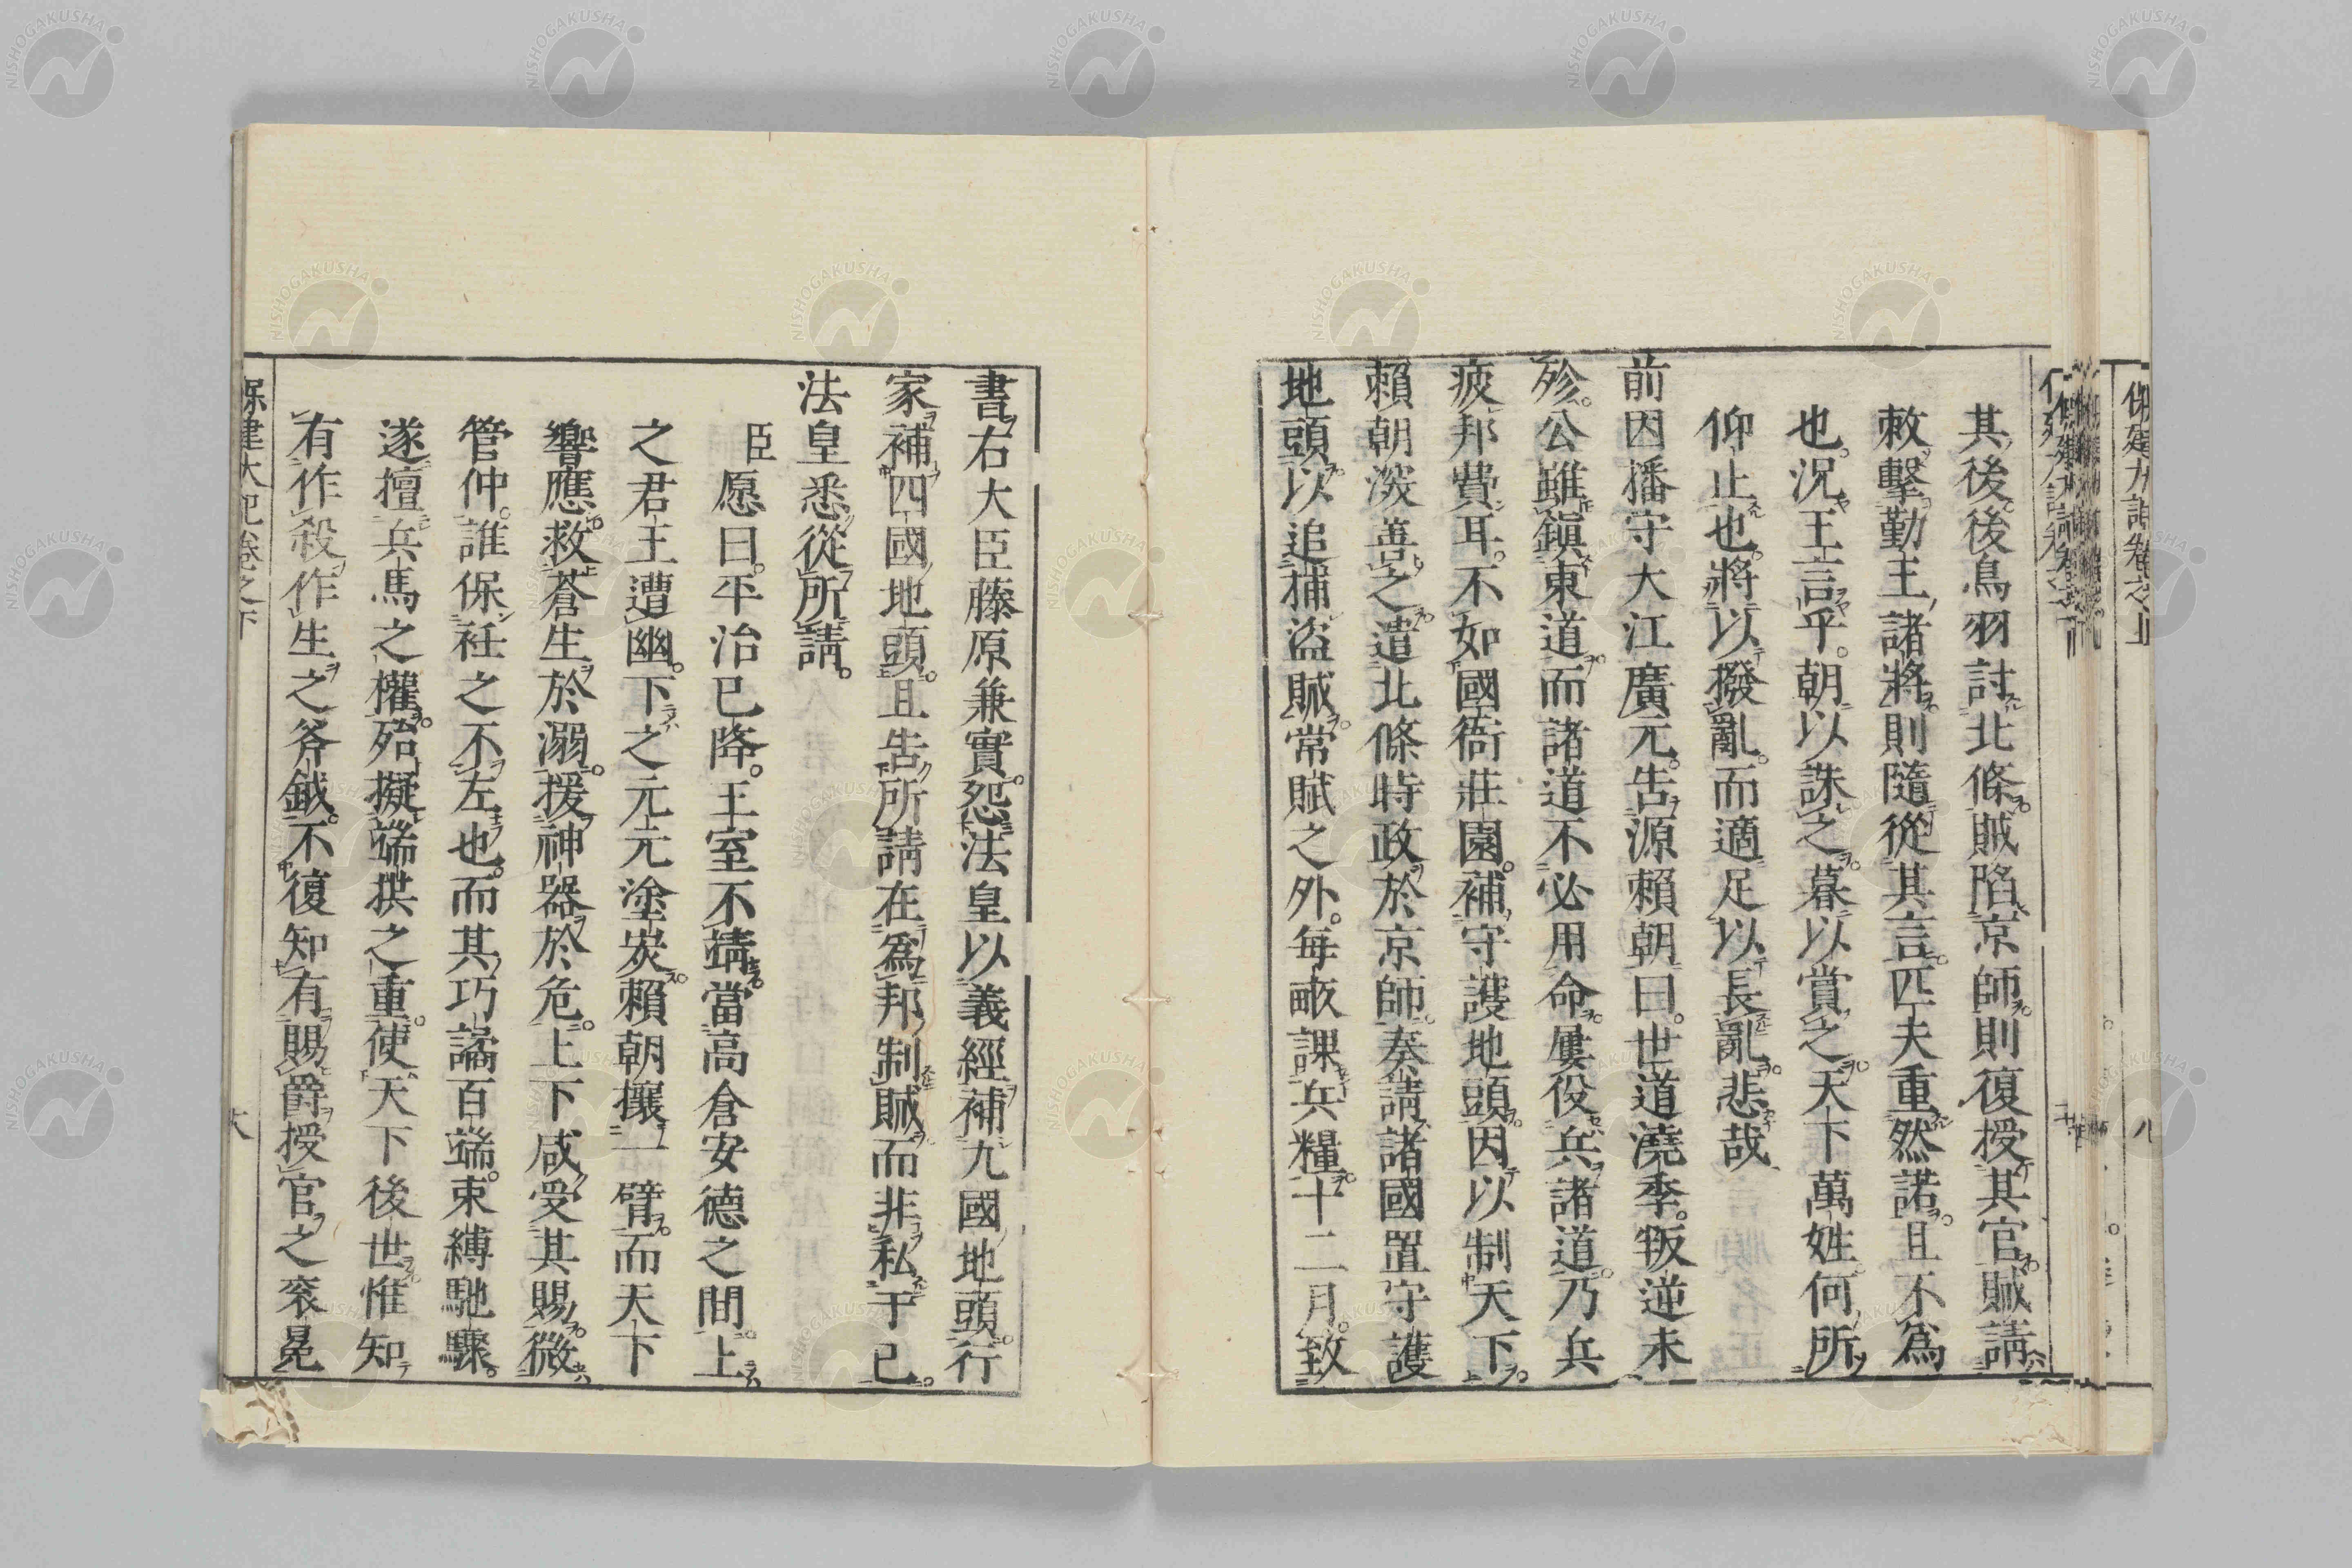 其後後鳥羽討北條。賊陷京師。則復授其官。賊請
敕擊勤王諸將。則隨從其言。匹夫重然諾。且不爲
也。況王言乎。朝以誅之。暮以賞之。天下萬姓何所
仰止也。將以撥亂。而適足以長亂。悲哉
前因播守大江廣元。告源頼朝曰。世道澆季。叛逆未
殄。公雖鎭東道。而諸道不必用命。屢役兵諸道。乃兵
疲邦費耳。不如國衙莊園。補守護地頭。因以制天下。
頼朝深善之。遣北條時政於京師。奏請諸國置守護
地頭。以追捕盜賊。常賦之外。毎畝課兵糧。十二月。致
書右大臣藤原兼實。怨法皇以義經補九國地頭。行
家補四國地頭。且告所請在爲邦制賊。而非私于已。
法皇悉從所請。
臣愿曰。平治已降。王室不靖。當高倉安德之間。上
之君王遭幽。下之元元塗炭。頼朝攘一臂。而天下
響應。救蒼生於溺。援神器於危。上下咸受其賜。微
管仲。誰保衽之不左也。而其巧譎百端。束縛馳驟。
遂擅兵馬之權。殆擬端拱之重。使天下後世惟知
有作殺作生之斧鉞。不復知有賜爵授官之袞冕
保建大記卷之下